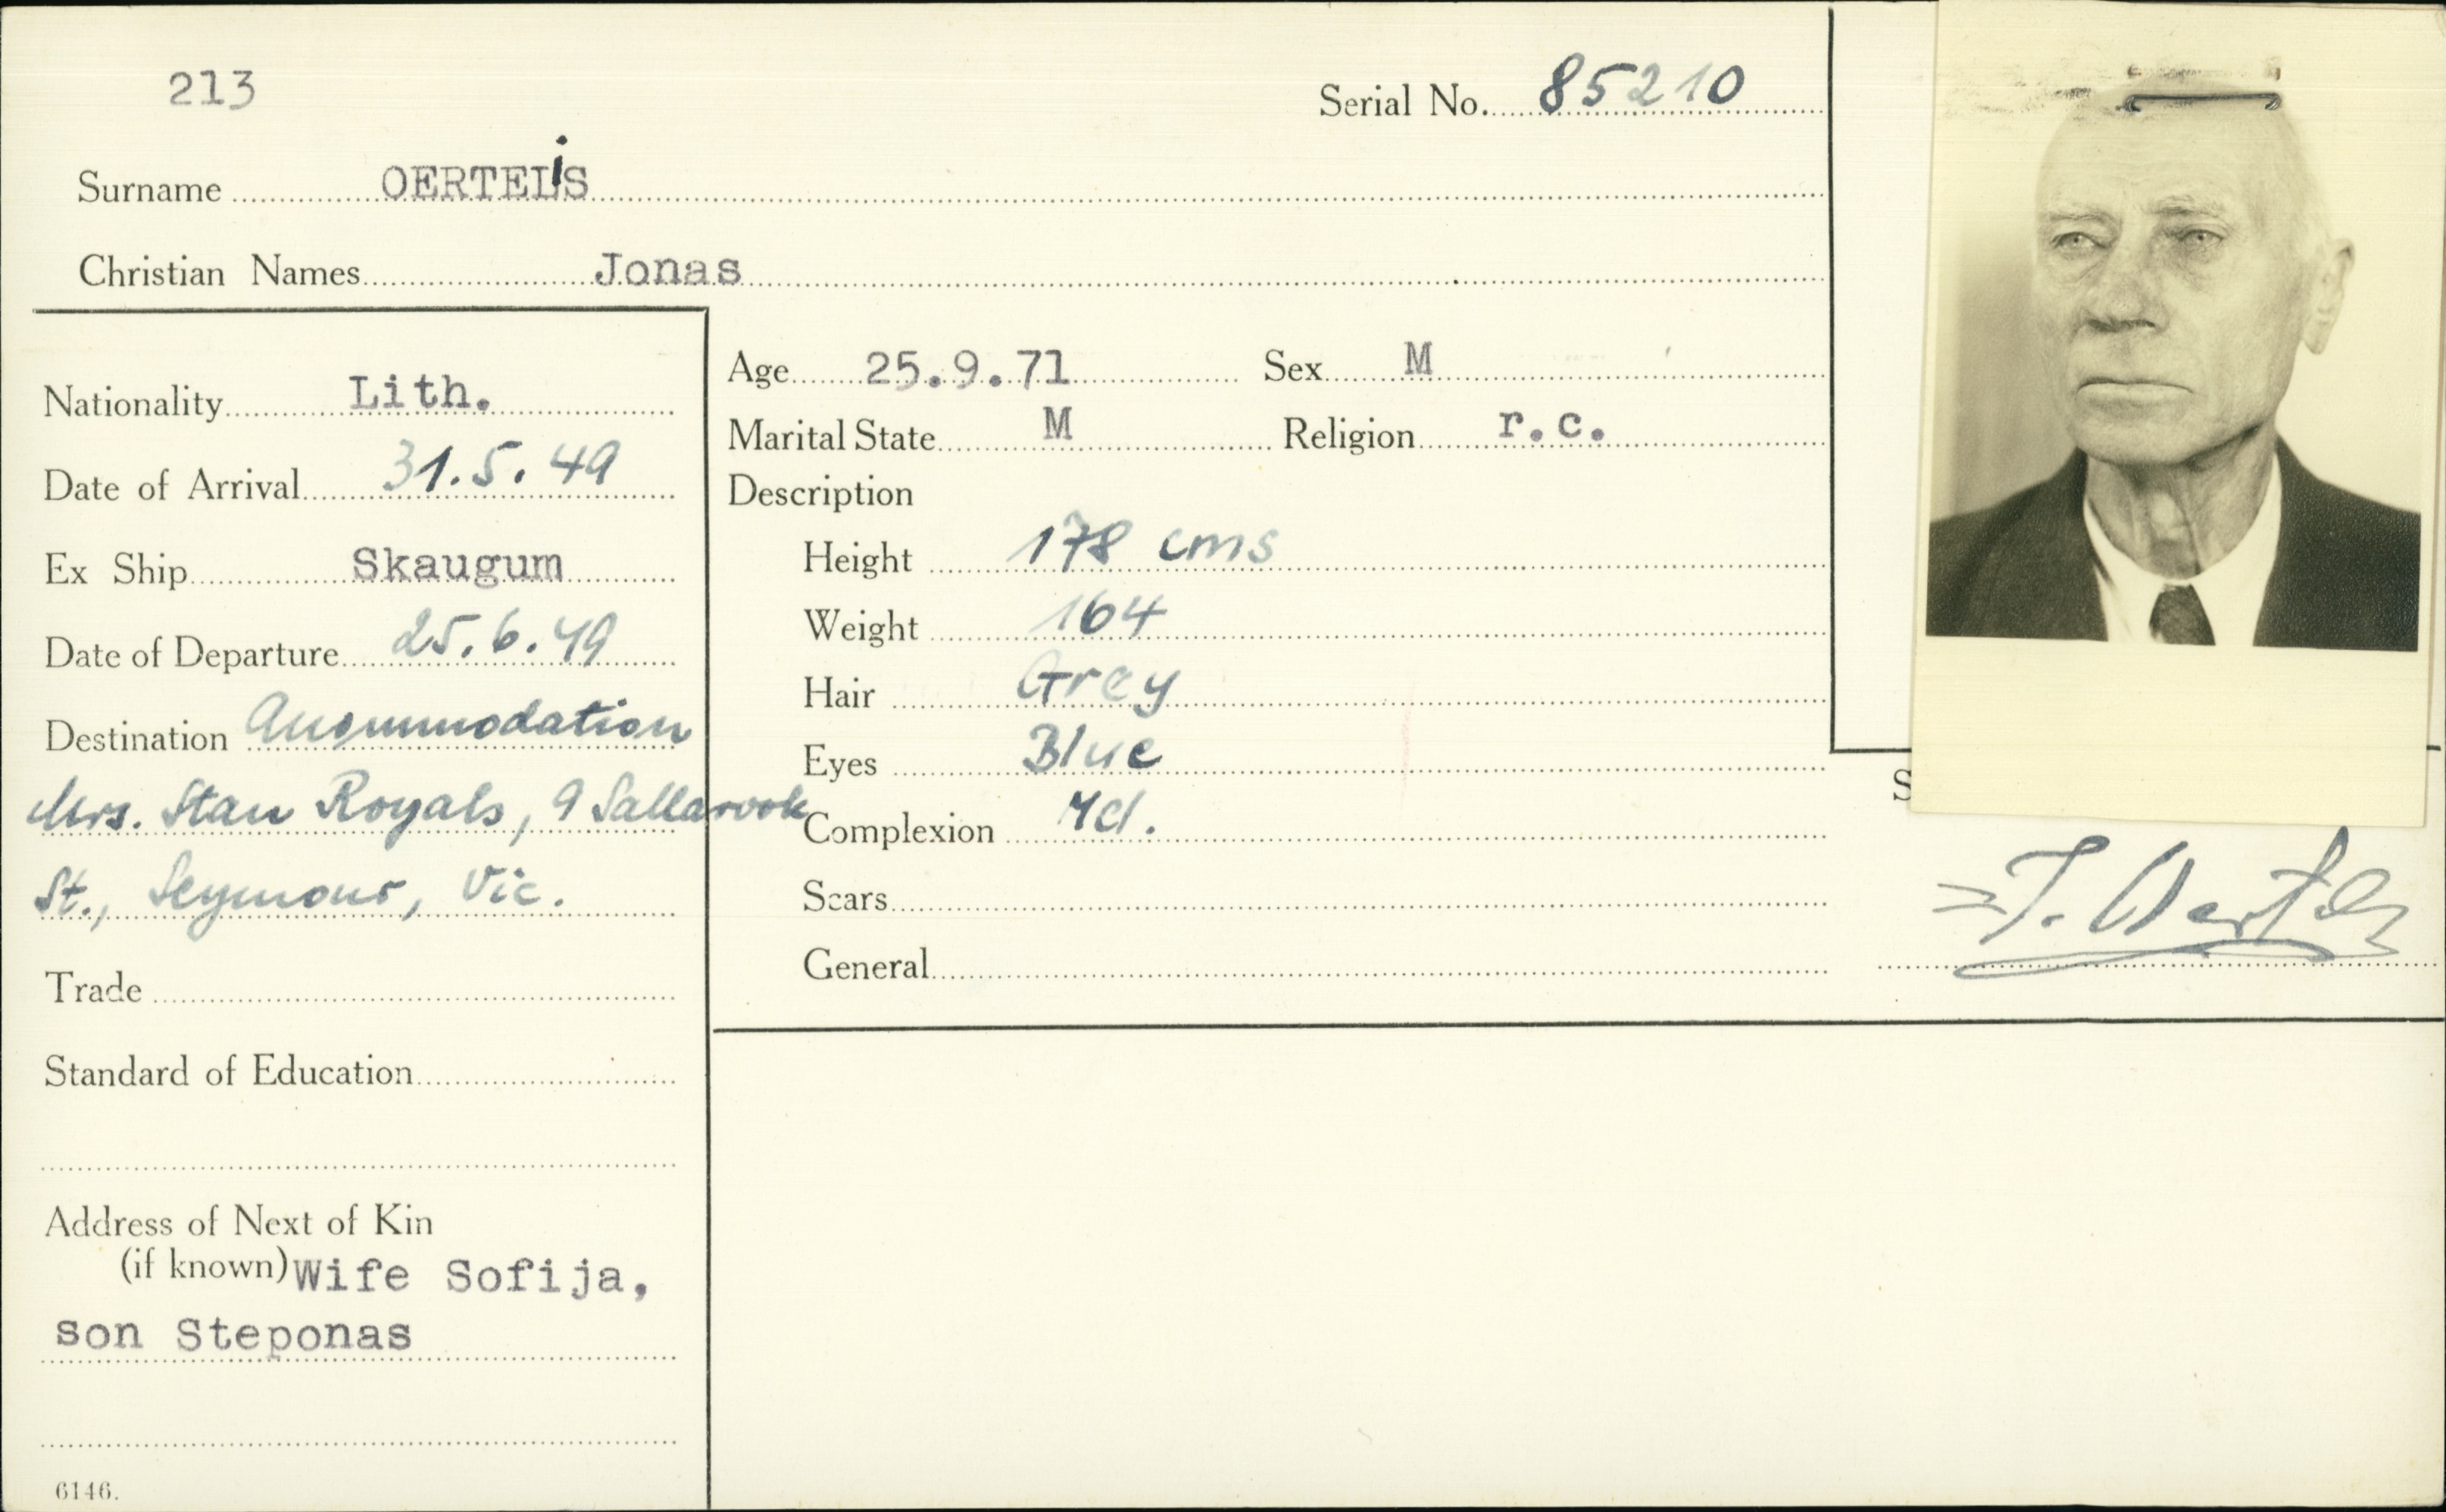 213
Serial No. 85210
Surname OERTELiS
Christian Names Jonas
Nationality Lith.
Date of Arrival 31.5.49
Ex Ship Skaugum
Date of Departure 25.6.49
Destination Accommodation
Mrs. Stan Royals, 9 Tallarook
St., Seymour, Vic.
Trade
Standard of Education
Address of Next of Kin
(if known) Wife Sofija,
son Steponas
6146.
Age 25.9.71 Sex M
Marital State M Religion r.c.
Description
Height 178 cms
Weight 164
Hair Grey
Eyes Blue
Complexion Md.
Scars
General
S
J. Oertelis